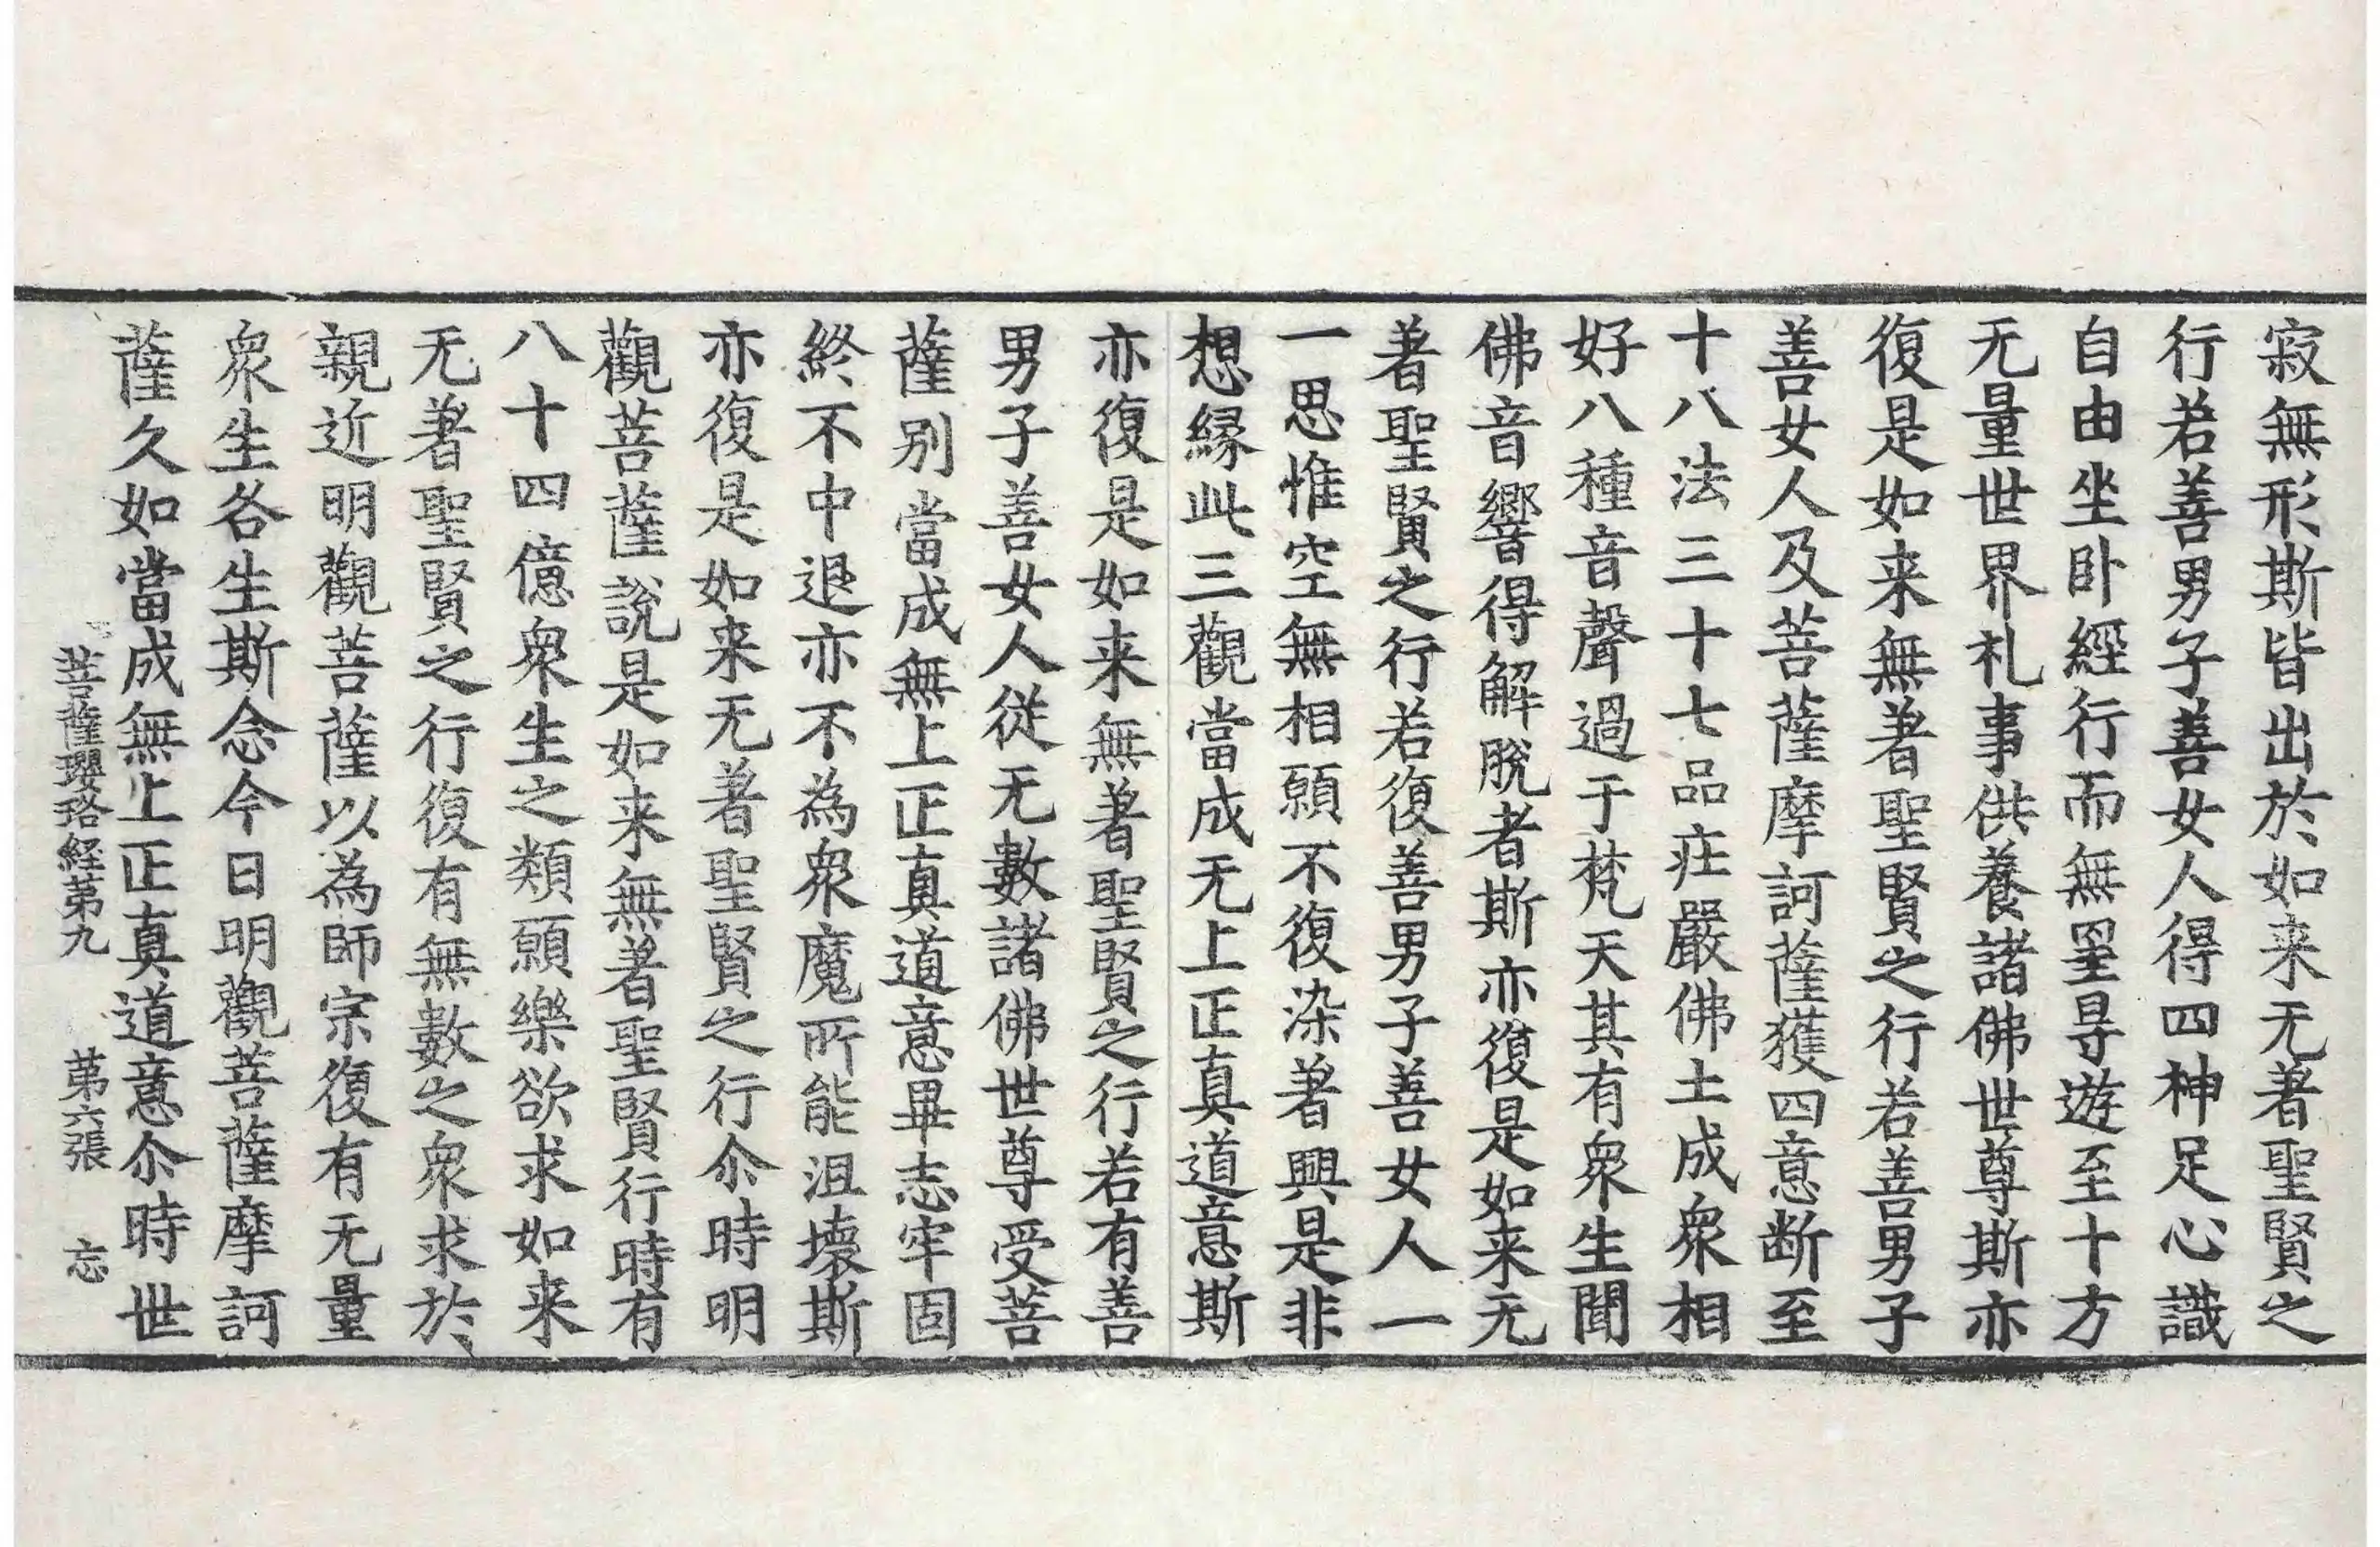 寂無形斯皆出於如来无著聖賢之
行若善男子善女人得四神足心識
自由坐卧經行而無罣㝵遊至十方
无量世界礼事供養諸佛世尊斯亦
復是如来無著聖賢之行若善男子
善女人及菩薩摩訶薩獲四意断至
十八法三十七品莊嚴佛土成衆相
好八種音聲過于梵天其有衆生聞
佛音響得解脫者斯亦復是如来无
著聖賢之行若復善男子善女人一
一思惟空無相願不復染著興是非
想縁此三觀當成无上正真道意斯
亦復是如来無著聖賢之行若有善
男子善女人從无數諸佛世尊受菩
薩別當成無上正真道意畢志牢固
終不中退亦不為衆魔所能沮壞斯
亦復是如来无著聖賢之行尒時明
觀菩薩說是如来無著聖賢行時有
八十四億衆生之類願樂欲求如来
无著聖賢之行復有無數之衆求於
親近明觀菩薩以為師宗復有无量
衆生各生斯念今日明觀菩薩摩訶
薩久如當成無上正真道意尒時世
菩薩瓔珞経苐九 苐六張 忘